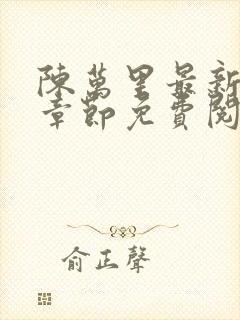 陳萬里最新
章節免費閱
俞正聲